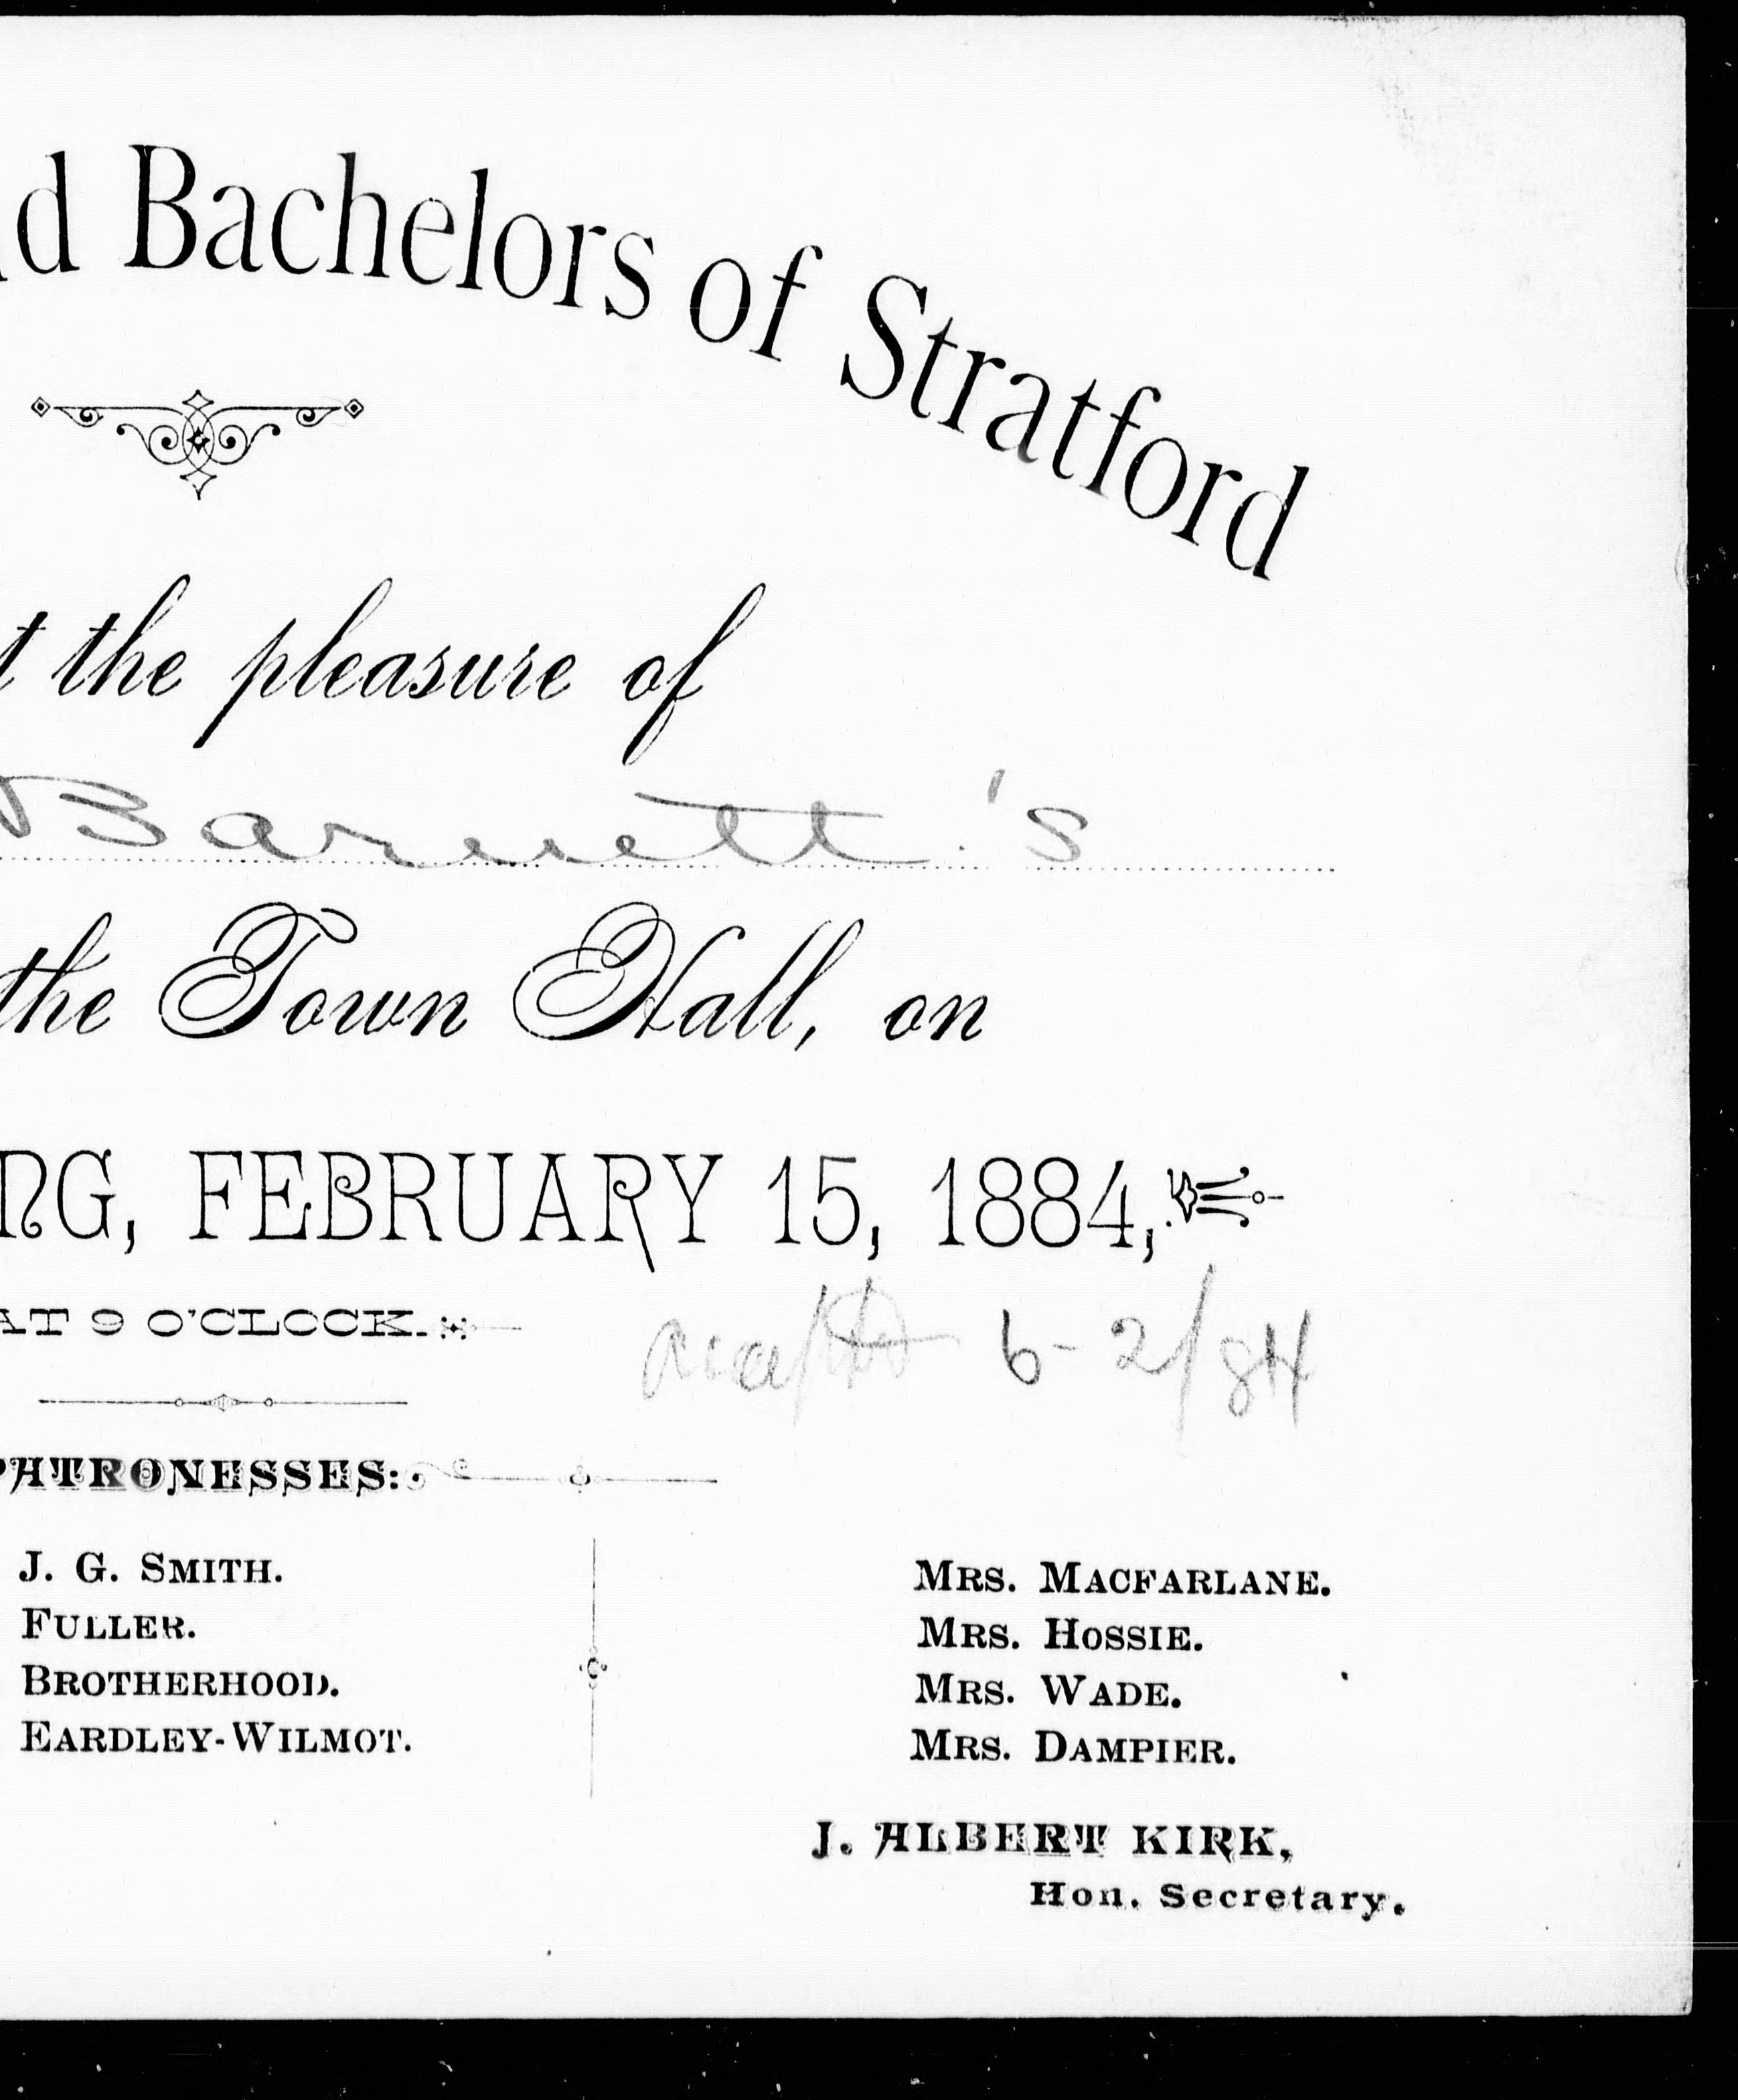 d Bachelors of Stratford
t the pleasure of
Barnett's
the Town Hall, on
NG, FEBRUARY 15, 1884,
AT 9 O'CLOCK.
PATRONESSES:
J. G. SMITH.
FULLER.
BROTHERHOOD.
EARDLEY-WILMOT.
MRS. MACFARLANE.
MRS. HOSSIE.
MRS. WADE.
MRS. DAMPIER.
6-2/84
J. ALBERT KIRK,
Hon. Secretary.